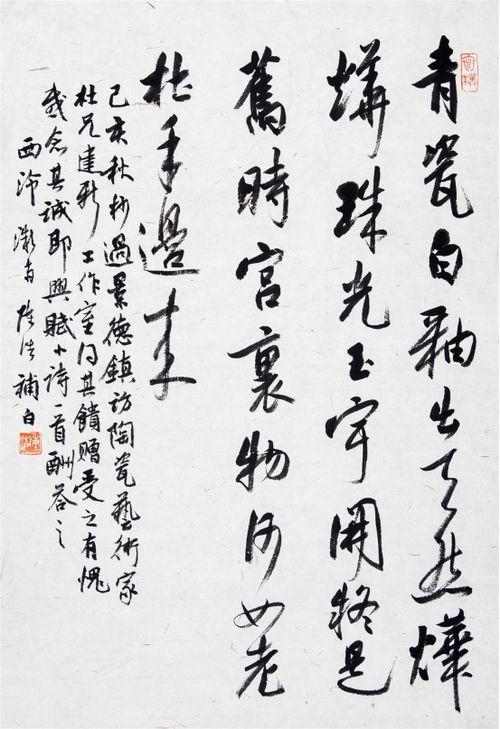 青瓷白釉出天然燁
燁珠光玉宇開終是
舊時宮裏物何如老
杜手邊來
己亥秋杪過景德鎮訪陶瓷藝術家
杜兄建新工作室得其饋贈受之有愧
感念其誠即興賦小詩一首酬答之
西泠 補白